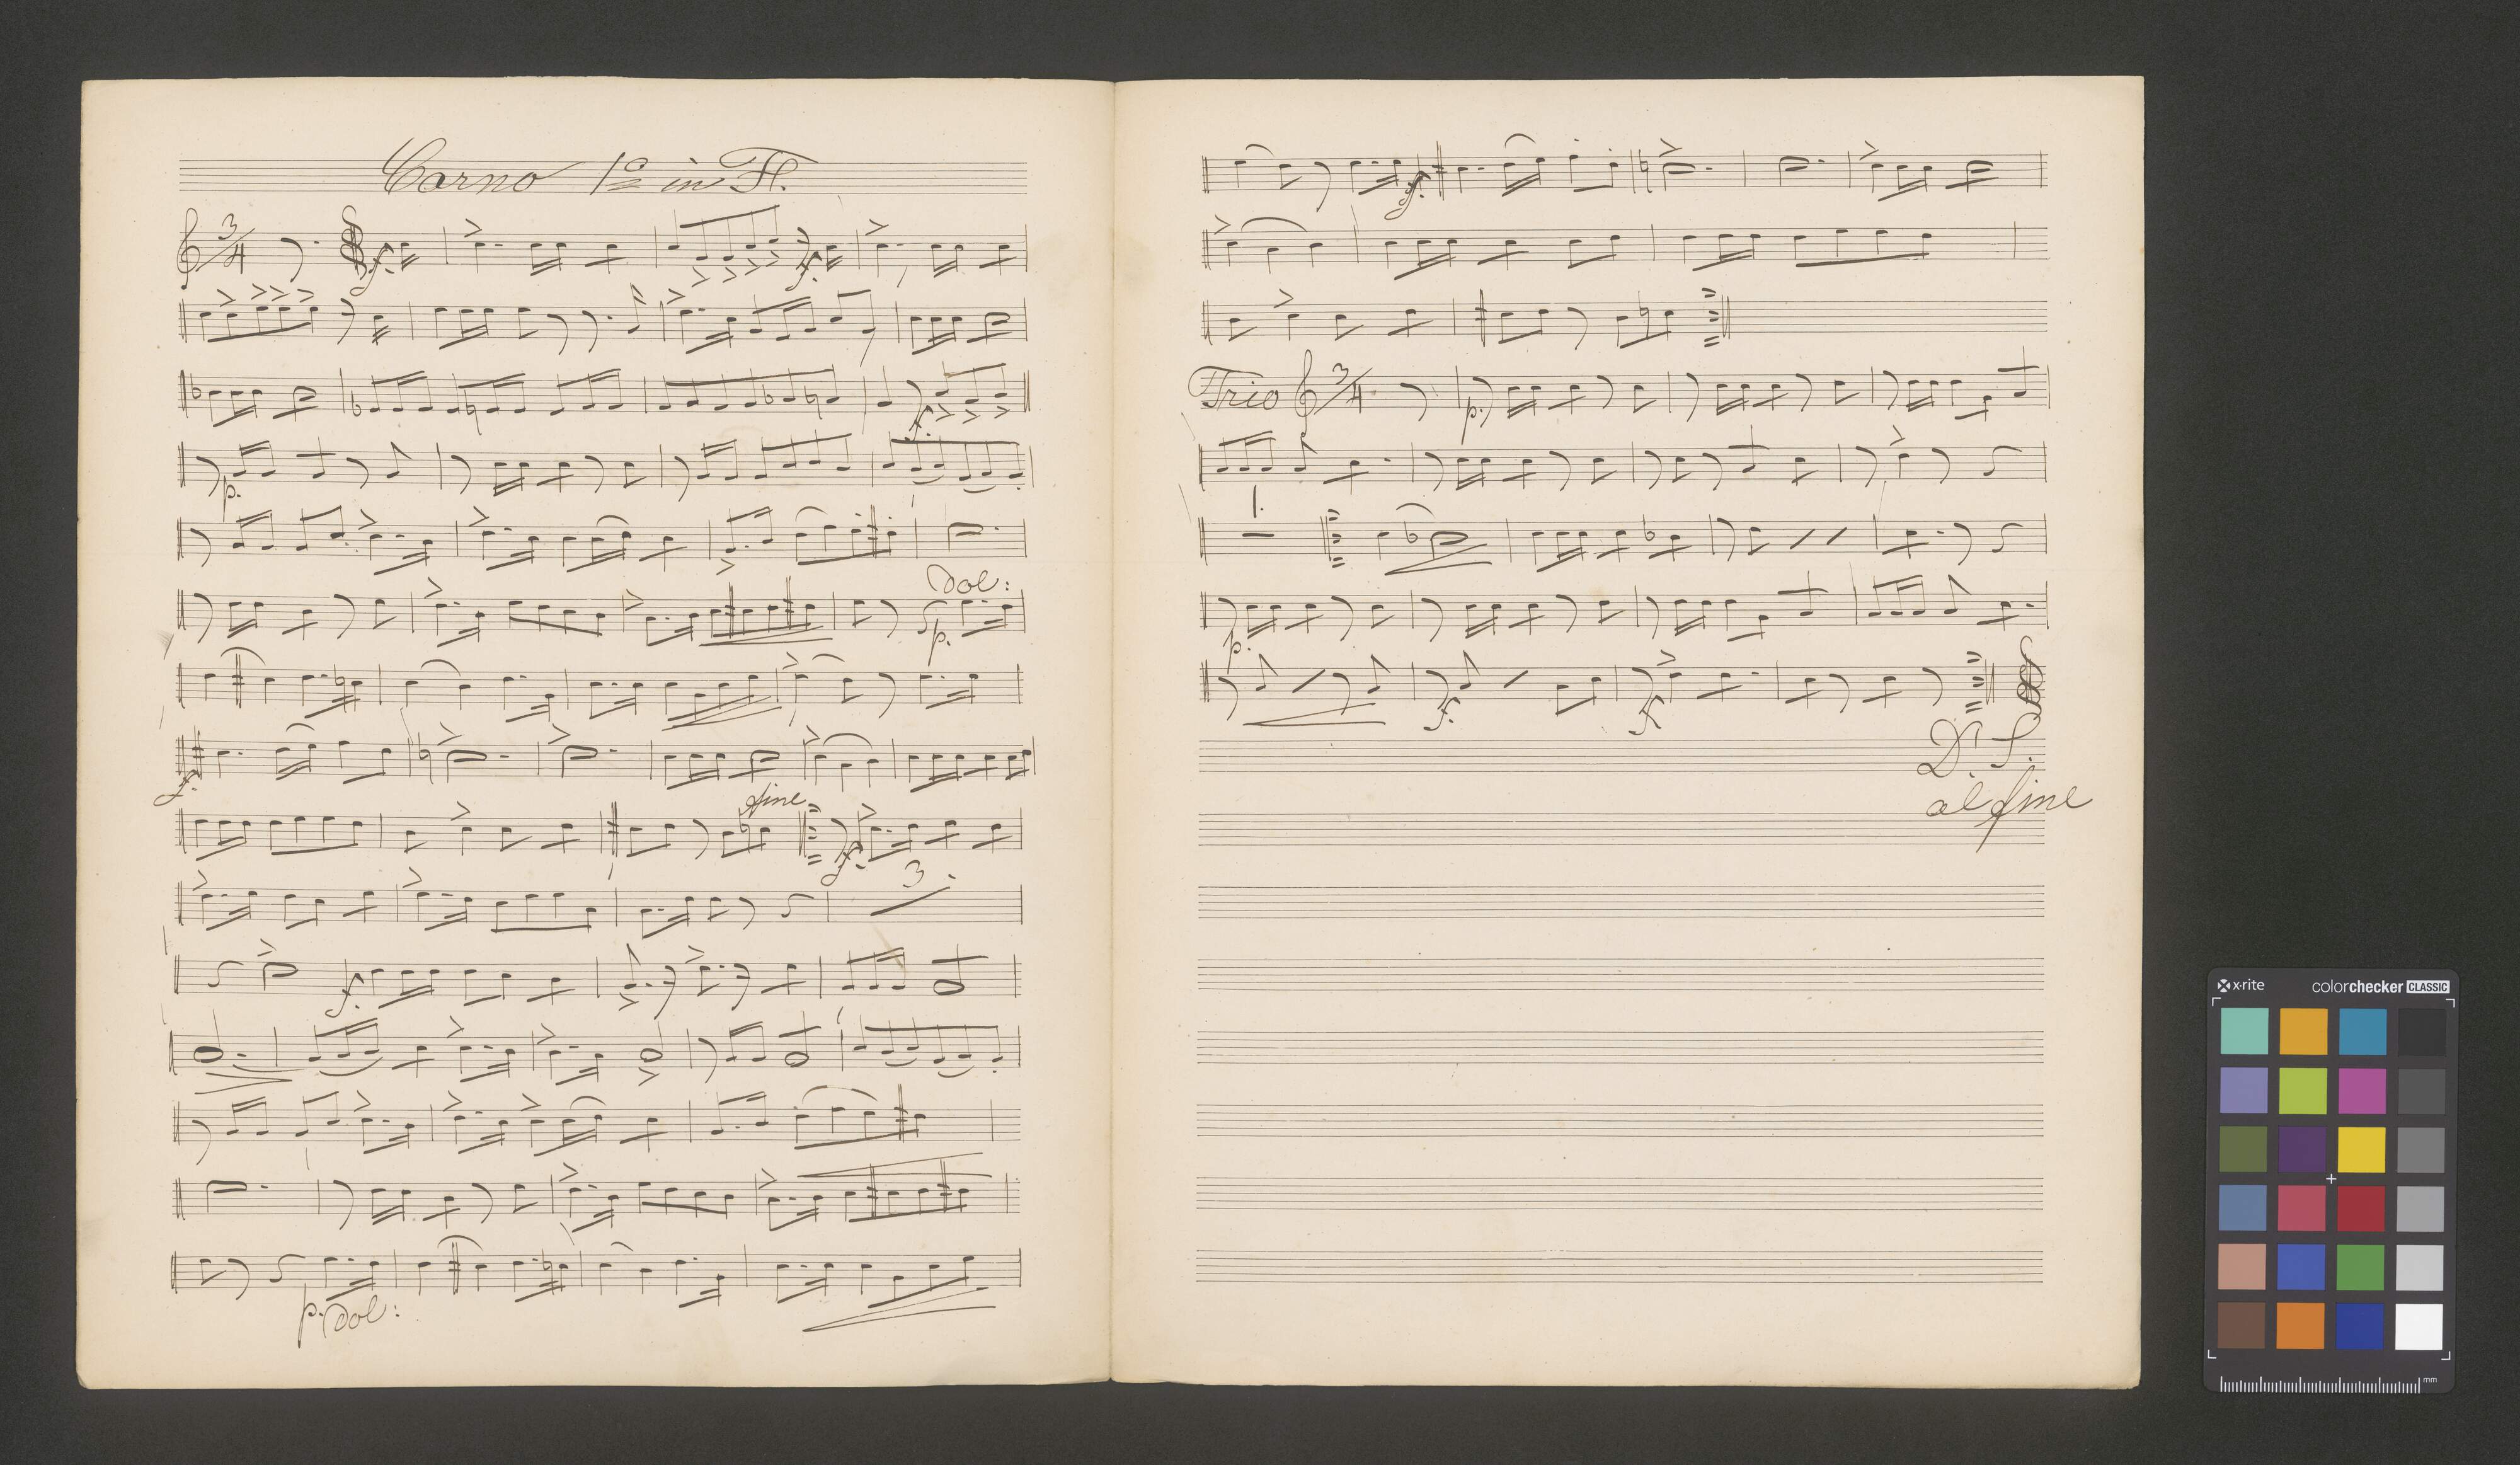 Corno 1º in F.
3/4
f.
f.
f.
p.
Dol:
p.
f.
fine
f.
3
f.
p. Dol:
f.
Trio 3/4
p.
1.
p.
f. f
D. S.
al fine
x-rite colorchecker CLASSIC
mm